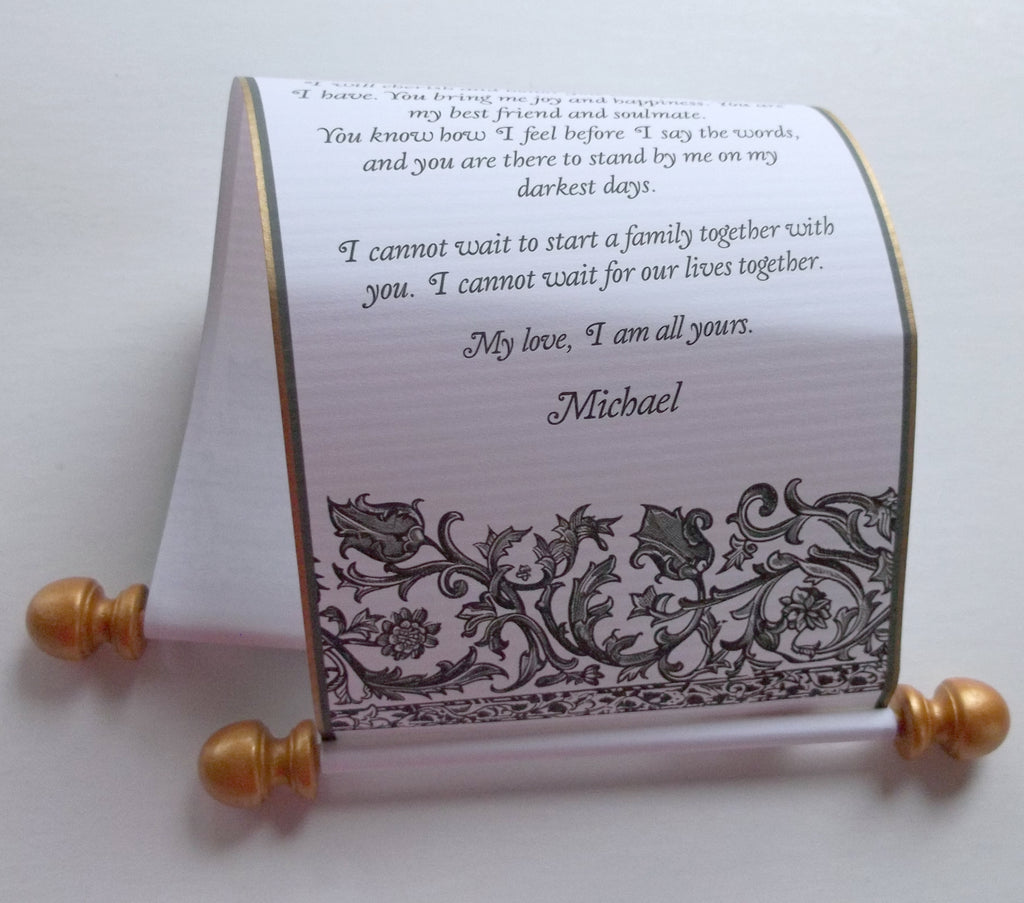 I will cherish and
I have. You bring me joy and happiness. You are
my best friend and soulmate.
You know how I feel before I say the words,
and you are there to stand by me on my
darkest days.
I cannot wait to start a family together with
you. I cannot wait for our lives together.
My love, I am all yours.
Michael